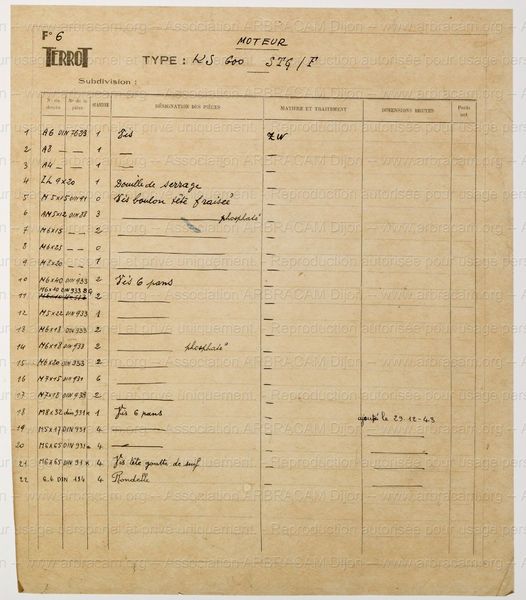 F° 6
MOTEUR
TERROT
TYPE : KS 600 STG/F
Subdivision :
N° du dessin N° de la pièce NOMBRE DÉSIGNATION DES PIÈCES MATIÈRE ET TRAITEMENT DIMENSIONS BRUTES Poids net
1 A6 DIN 7633 1 Vis ZW
2 A8 — — 1 — —
3 A4 — — 1 — —
4 IL 9x20 1 Douille de serrage —
5 M5x15 DIN 91 0 Vis boulon tête fraisée —
6 AM5x12 DIN 88 3 — phosphaté —
7 M6x15 — 2 — —
8 M6x25 — 0 — —
9 M8x20 — 1 — —
10 M6x40 DIN 933 2 Vis 6 pans —
M6x10 DIN 933 8G
11 2 — —
12 M5x22 DIN 933 1 — —
13 M6x18 DIN 933 2 — —
14 M6x18 DIN 933 2 — phosphaté —
15 M6x20 DIN 933 2 — —
16 M7x15 DIN 931 6 — —
17 M7x18 DIN 933 2 — —
18 M8x32 din 931 1 Vis 6 pans — ajouté le 29-12-43
19 M5x17 DIN 931 4 — — —
20 M6x65 DIN 931 4 — — —
21 M6x65 DIN 91 4 Vis tête goutte de suif — —
22 6.4 DIN 134 4 Rondelle — —
www.arbracam.org – Association ARBRACAM Dijon – www.arbracam.org
Reproduction autorisée pour usage personnel et privé uniquement